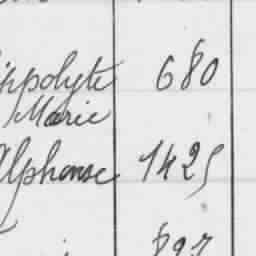 ippolyte 680
Marie
Alphonse 1425
827